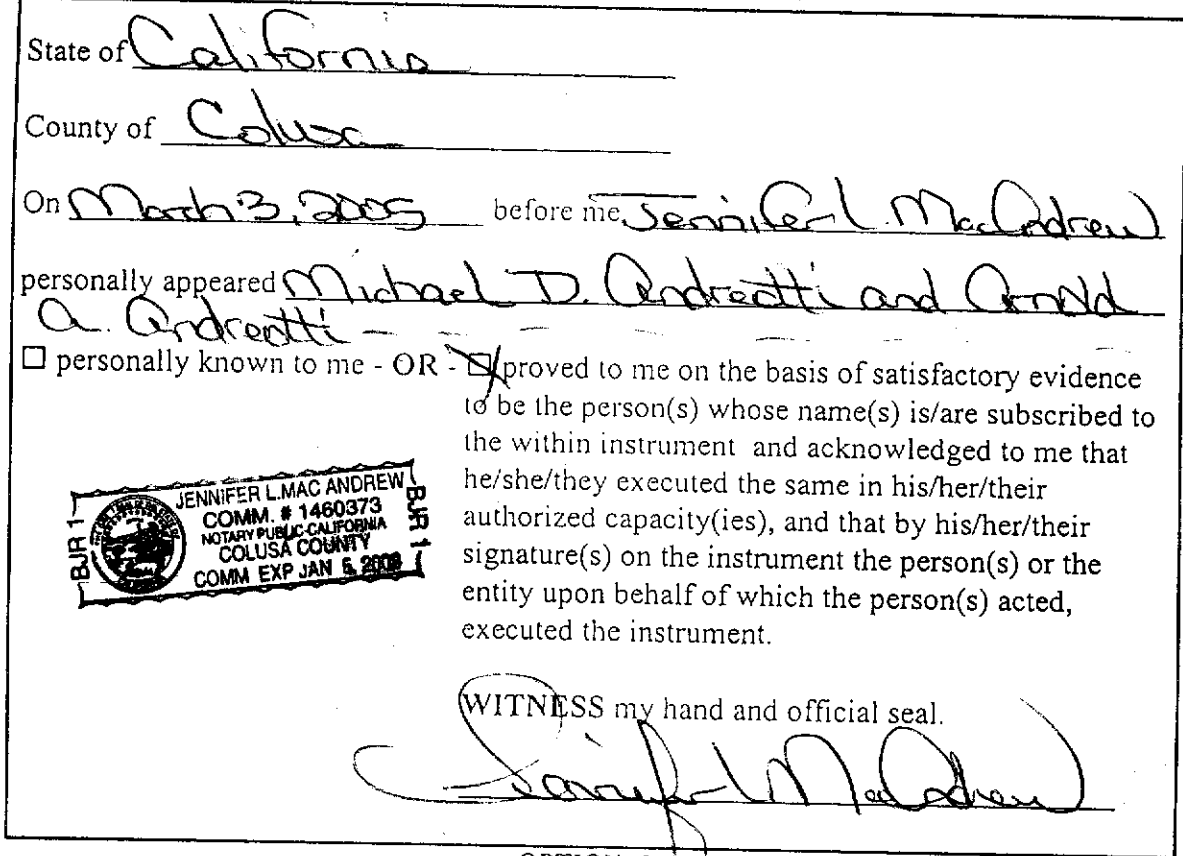 State of California
County of Colusa
On March 3, 2005 before me, Jennifer L. MacAndrew
personally appeared Michael D. Andreotti and Arnold
A. Andreotti - - - - - - -
☐ personally known to me - OR - ☒ proved to me on the basis of satisfactory evidence
to be the person(s) whose name(s) is/are subscribed to
the within instrument and acknowledged to me that
he/she/they executed the same in his/her/their
authorized capacity(ies), and that by his/her/their
signature(s) on the instrument the person(s) or the
entity upon behalf of which the person(s) acted,
executed the instrument.
BJR 1
JENNIFER L. MAC ANDREW
COMM. # 1460373
NOTARY PUBLIC-CALIFORNIA
COLUSA COUNTY
COMM EXP JAN 5,
BJR 1
WITNESS my hand and official seal.
Jennifer L MacAndrew